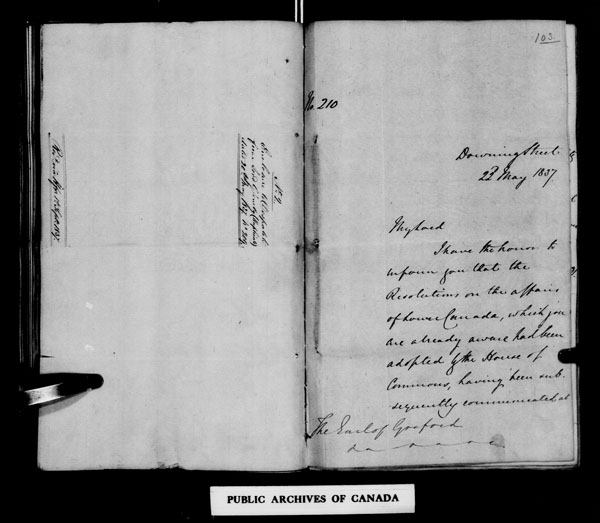 103.
No. 210
Downing Street
22d May 1837
My Lord
I have the honor to
inform you that the
Resolutions on the affairs
of Lower Canada, which you
are already aware had been
adopted by the House of
Commons, having been sub-
sequently communicated at
The Earl of Gosford
No. 2
PUBLIC ARCHIVES OF CANADA